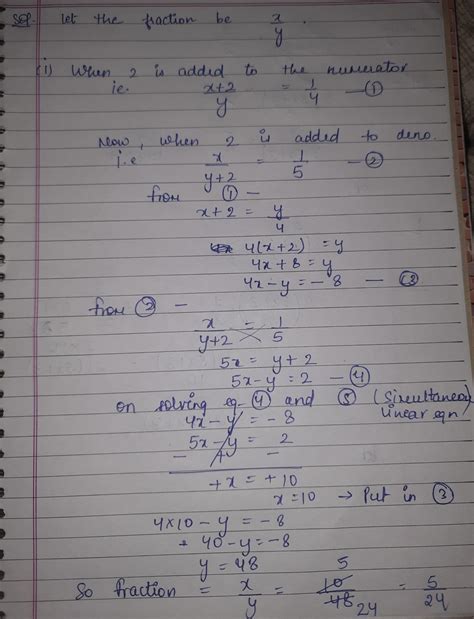 Sol. let the fraction be x/y.
(i) When 2 is added to the numerator
ie. x+2/y = 1/4 —①
Now, when 2 is added to deno.
i.e x/y+2 = 1/5 —②
from ① —
x+2 = y/4
4(x+2) = y
4x+8 = y
4x-y = -8 —③
from ② —
x/y+2 = 1/5
5x = y+2
5x-y = 2 —④
on solving eq ④ and ⑤ (Simultaneous
linear eqn)
4x-y = -8
5x-y = 2
- + -
+x = +10
x=10 → Put in ③
4×10-y = -8
40-y=-8
y = 48
So fraction = x/y = 10/48 = 5/24
5
24